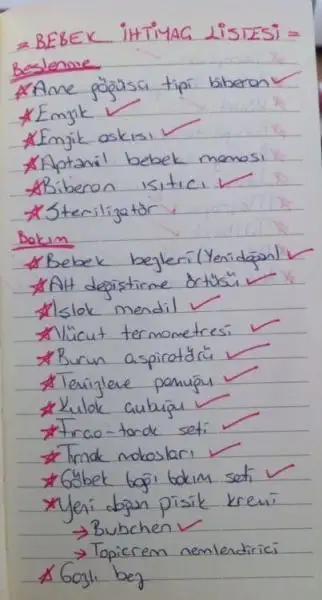 = BEBEK İHTİYAÇ LİSTESİ =
Beslenme
* Anne göğüsü tipi biberon ✓
* Emzik ✓
* Emzik askısı ✓
* Aptamil bebek maması
* Biberon ısıtıcı ✓
* Sterilizatör ✓
Bakım
* Bebek bezleri (Yenidoğan) ✓
* Alt değiştirme örtüsü ✓
* Islak mendil ✓
* Vücut termometresi ✓
* Burun aspiratörü ✓
* Temizleme pamuğu ✓
* Kulak çubuğu ✓
* Fırça-tarak seti ✓
* Tırnak makasları ✓
* Göbek bağı bakım seti ✓
* Yeni doğan pişik kremi
→ Bubchen ✓
→ Topicrem nemlendirici
* Gazlı bez